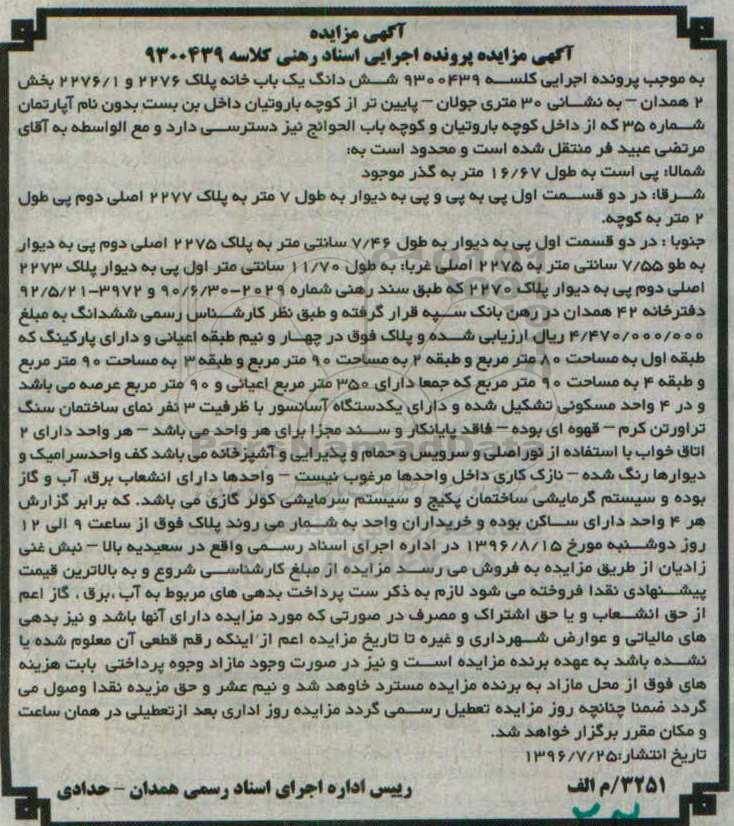 آگهی مزایده
آگهی مزایده پرونده اجرایی اسناد رهنی کلاسه ۹۳۰۰۴۳۹
به موجب پرونده اجرایی کلسه ۹۳۰۰۴۳۹ شش دانگ یک باب خانه پلاک ۲۲۷۶ و ۲۲۷۶/۱ بخش
۲ همدان – به نشانی ۳۰ متری جولان – پایین تر از کوچه باروتیان داخل بن بست بدون نام آپارتمان
شماره ۳۵ که از داخل کوچه باروتیان و کوچه باب الحوائج نیز دسترسی دارد و مع الواسطه به آقای
مرتضی عبید فر منتقل شده است و محدود است به:
شمالا: پی است به طول ۱۶/۶۷ متر به گذر موجود
شرقا: در دو قسمت اول پی به پی و پی به دیوار به طول ۷ متر به پلاک ۲۲۷۷ اصلی دوم پی طول
۲ متر به کوچه.
جنوبا : در دو قسمت اول پی به دیوار به طول ۷/۴۶ سانتی متر به پلاک ۲۲۷۵ اصلی دوم پی به دیوار
به طو ۷/۵۵ سانتی متر به ۲۲۷۵ اصلی غربا: به طول ۱۱/۷۰ سانتی متر اول پی به دیوار پلاک ۲۲۷۳
اصلی دوم پی به دیوار پلاک ۲۲۷۰ که طبق سند رهنی شماره ۲۰۲۹-۹۰/۶/۳۰ و ۳۹۷۲-۹۲/۵/۲۱
دفترخانه ۴۲ همدان در رهن بانک سپه قرار گرفته و طبق نظر کارشناس رسمی ششدانگ به مبلغ
۴/۴۷۰/۰۰۰/۰۰۰ ریال ارزیابی شده و پلاک فوق در چهار و نیم طبقه اعیانی و دارای پارکینگ که
طبقه اول به مساحت ۸۰ متر مربع و طبقه ۲ به مساحت ۹۰ متر مربع و طبقه ۳ به مساحت ۹۰ متر مربع
و طبقه ۴ به مساحت ۹۰ متر مربع که جمعا دارای ۳۵۰ متر مربع اعیانی و ۹۰ متر مربع عرصه می باشد
و در ۴ واحد مسکونی تشکیل شده و دارای یکدستگاه آسانسور با ظرفیت ۳ نفر نمای ساختمان سنگ
تراورتن کرم – قهوه ای بوده – فاقد پایانکار و سند مجزا برای هر واحد می باشد – هر واحد دارای ۲
اتاق خواب با استفاده از نوراصلی و سرویس و حمام و پذیرایی و آشپزخانه می باشد کف واحدسرامیک و
دیوارها رنگ شده – نازک کاری داخل واحدها مرغوب نیست – واحدها دارای انشعاب برق، آب و گاز
بوده و سیستم گرمایشی ساختمان پکیج و سیستم سرمایشی کولر گازی می باشد. که برابر گزارش
هر ۴ واحد دارای ساکن بوده و خریداران واحد به شمار می روند پلاک فوق از ساعت ۹ الی ۱۲
روز دوشنبه مورخ ۱۳۹۶/۸/۱۵ در اداره اجرای اسناد رسمی واقع در سعیدیه بالا – نبش غنی
زادیان از طریق مزایده به فروش می رسد مزایده از مبلغ کارشناسی شروع و به بالاترین قیمت
پیشنهادی نقدا فروخته می شود لازم به ذکر ست پرداخت بدهی های مربوط به آب ،برق ، گاز اعم
از حق انشعاب و یا حق اشتراک و مصرف در صورتی که مورد مزایده دارای آنها باشد و نیز بدهی
های مالیاتی و عوارض شهرداری و غیره تا تاریخ مزایده اعم از اینکه رقم قطعی آن معلوم شده یا
نشده باشد به عهده برنده مزایده است و نیز در صورت وجود مازاد وجوه پرداختی بابت هزینه
های فوق از محل مازاد به برنده مزایده مسترد خاوهد شد و نیم عشر و حق مزیده نقدا وصول می
گردد ضمنا چنانچه روز مزایده تعطیل رسمی گردد مزایده روز اداری بعد ازتعطیلی در همان ساعت
و مکان مقرر برگزار خواهد شد.
تاریخ انتشار:۱۳۹۶/۷/۲۵
۳۲۵۱/م الف
رییس اداره اجرای اسناد رسمی همدان – حدادی